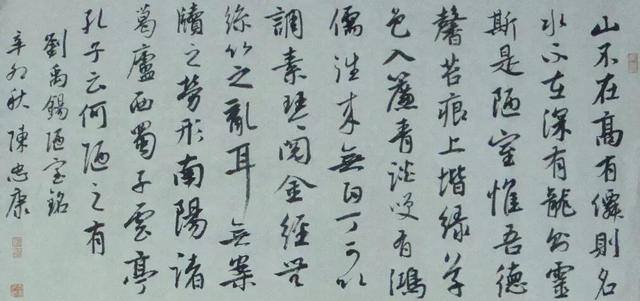 山不在高有僊則名
水不在深有龍則靈
斯是陋室惟吾德
馨苔痕上堦緑草
色入簾青談笑有鴻
儒往来無白丁可以
調素琴閲金經無
絲竹之亂耳無案
牘之勞形南陽諸
葛廬西蜀子雲亭
孔子云何陋之有
劉禹錫陋室銘
辛卯秋 陳忠康